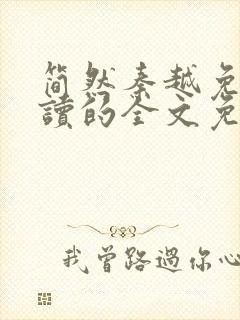 简然秦越免
读的全文免
我曾路過你心